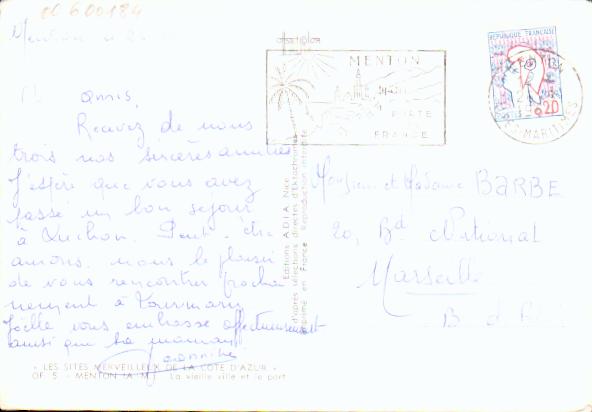 Menton le 2
amis,
Recevez de nous
trois nos sincères amitiés
J'espère que vous avez
passé un bon séjour
à Luchon. Peut-être
aurons nous le plaisir
de vous rencontrer procha
nement à
Joëlle vous embrasse affectueusement
ainsi que sa maman
MENTON
PERLE
FRANCE
REPUBLIQUE FRANÇAISE
0,20
MARITIMES
Monsieur et Madame BARBE
20, Bd National
Marseille
B. d. R.
Editions ADIA Nice
d'après sélections directes d'Ektachromes
imprimé en France Reproduction interdite
« LES SITES MERVEILLEUX DE LA COTE D'AZUR »
OF 5 - MENTON (A.M.) La vieille ville et le port